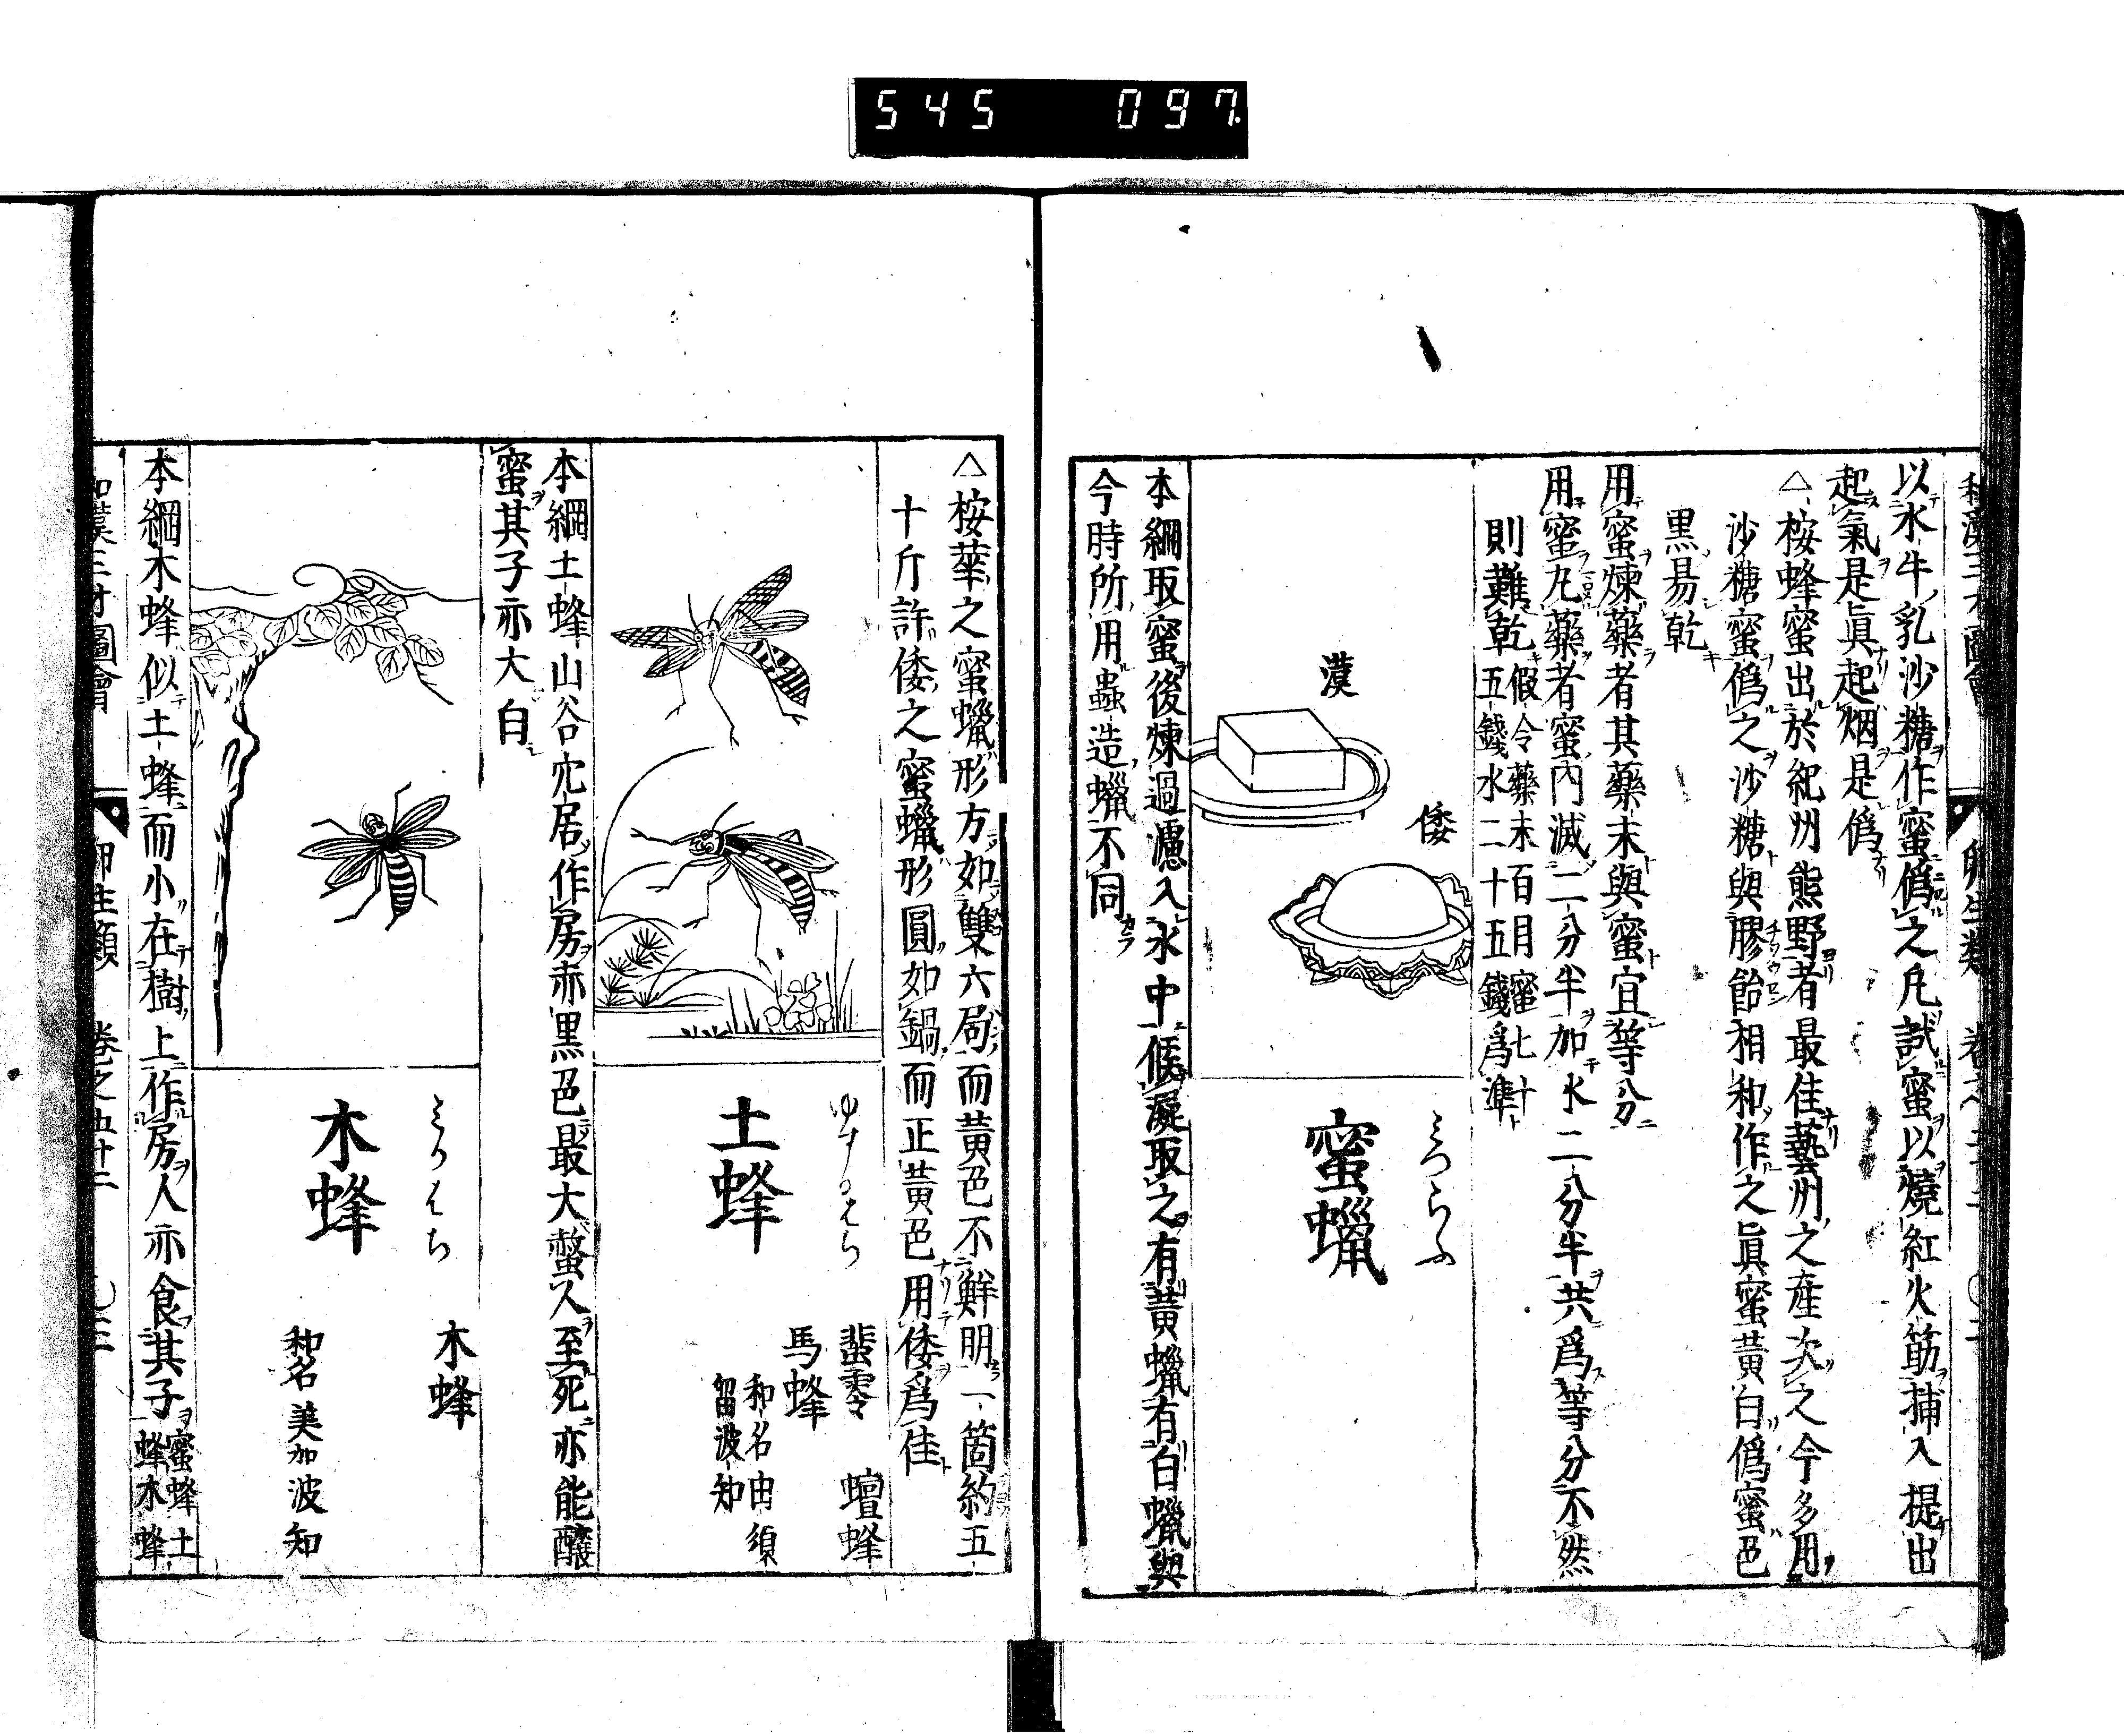 545 097
和漢三才圖會 卵生類 卷之五十二
以水牛乳沙糖作蜜僞之凡試蜜以燒紅火筯插入提出
起氣是眞起烟是僞
△桉蜂蜜出於紀州熊野者最佳藝州之產次之今多用
沙糖蜜僞之沙糖與膠飴相和作之眞蜜黃白僞蜜色
黒易乾
用蜜煉藥者其藥末與蜜宜等分
用蜜丸藥者蜜內減二分半加水二分半共爲等分不然
則難乾假令藥末百目蜜七十
五錢水二十五錢爲準
漢
倭
みつらふ
蜜蠟
本綱取蜜後煉過濾入水中候凝取之有黃蠟有白蠟與
今時所用蟲造蠟不同
△桉華之蜜蠟形方如雙六局而黃色不鮮明一箇約五
十斤許倭之蜜蠟形圓如鍋而正黃色用倭爲佳
ゆするばち
土蜂
蜚零 蟺蜂
馬蜂
和名由須
留波知
本綱土蜂山谷穴居作房赤黒色最大螫人至死亦能釀
蜜其子亦大白
みかばち
木蜂
木蜂
和名美加波知
本綱木蜂似土蜂而小在樹上作房人亦食其子蜜蜂土
蜂木蜂
和漢三才圖會 卵生類 卷之五十二